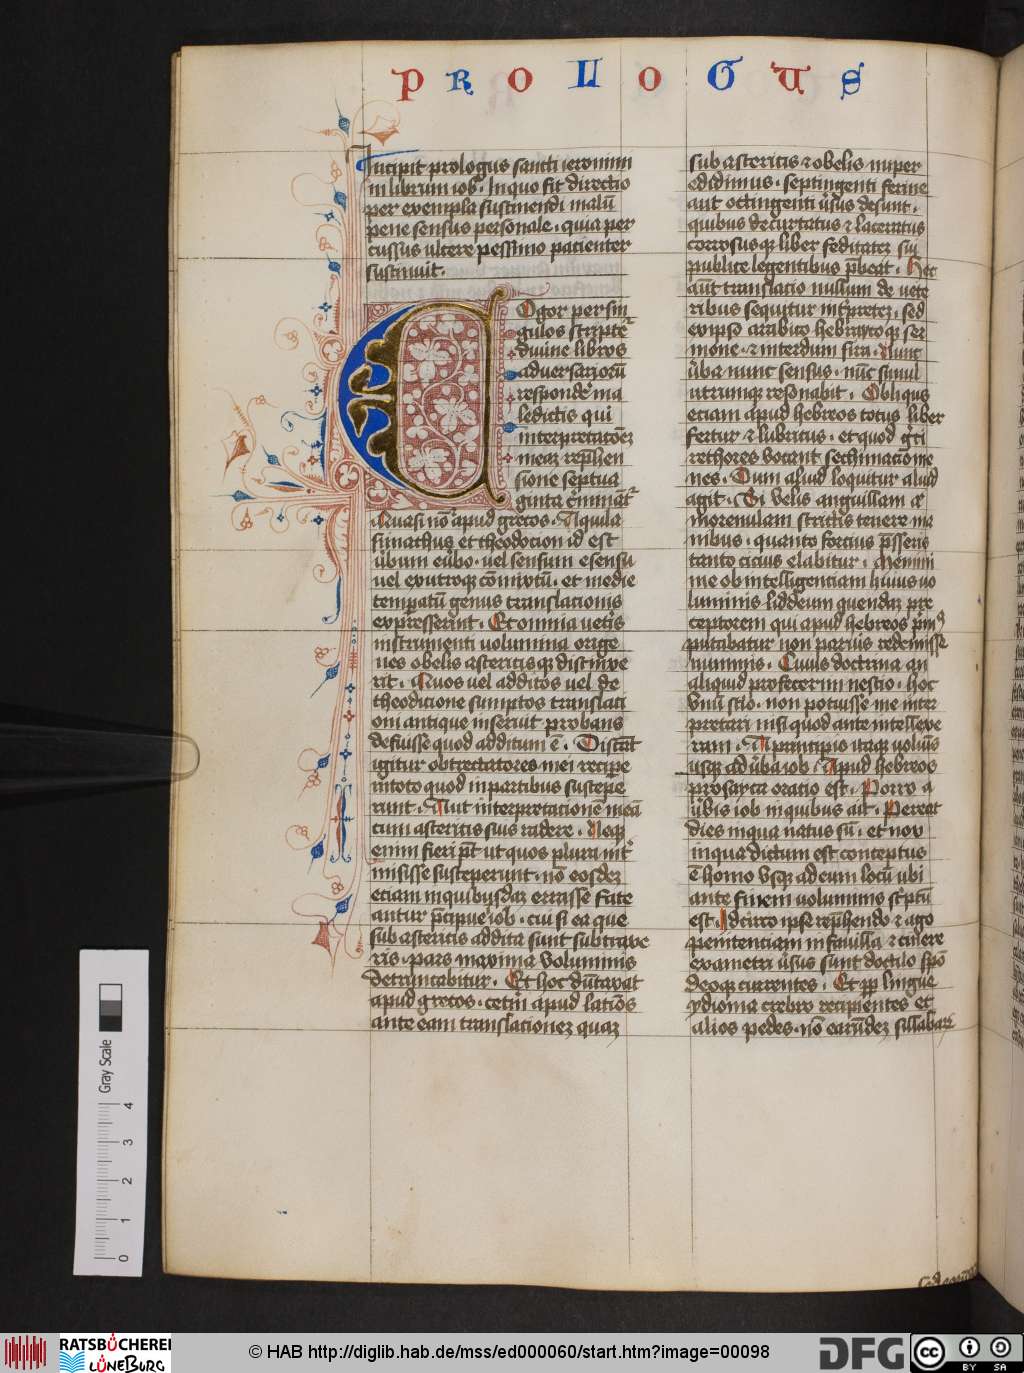 PROLOGUS
Incipit prologus sancti ieronimi
in librum iob. In quo fit directio
per exempla sustinendi malū
pene sensus personale. quia per
cussus ulcere pessimo patienter
sustinuit.
Cogor per sin
gulos scripte
diuine libros
adversarioru
responde ma
ledictis qui
interpretacōez
meaz rephen
sione septua
ginta criminat
Quasi nō apud grecos. Aquila
simachus et theodocion id est
ūbum eūbo. vel sensum esensu
vel ex utroq; cōmixtū. et medie
temperatū genus translacionis
expresserint. Et omnia vetis
instrumenti volumina orige
nes obelis astericisq; distinxe
rit. Quos vel additos vel de
theodicione sumptos translati
oni antique inseruit probans
defuisse quod additum ē. Discāt
igitur obtrectatores mei recipe
in toto quod in partibus suscepe
runt. Aut interpretacionē meā
cum astericis suis radere. Neq;
enim fieri pōt ut quos plura int
misisse susceperunt. nō eosdez
eciam in quibusdaz errasse fate
antur pcipue iob. cui si ea que
sub astericis addita sunt subtraxe
ris. pars maxima voluminis
detruncabitur. Et hoc dūtaxat
apud grecos. cetm apud latīos
ante eam translacionez quaz
sub astericis & obelis nuper
edidimus. septingenti ferme
aut octingenti ūsus desunt.
quibus decurtatus & laceratus
corrosusq; liber feditatez sui
publice legentibus pbeat. Hec
aūt translacio nullum de vete
ribus sequitur intpretez. sed
ex ipso arabico hebraycoq; ser
mone. & interdum sira. Nunc
ūba nunc sensus. nūc simul
utrumq; resonabit. Obliqus
eciam apud hebreos totus liber
fertur & lubricus. et quod gti
rethores vocant sechimacisme
nes. Dum aliud loquitur aliud
agit. Si velis anguillam at
morenulam strictis tenere ma
nibus. quanto forcius psseris
tanto cicius elabitur. Memini
me ob intelligenciam huius vo
luminis liddeum quendaz pre
ceptorem qui apud hebreos pmꝰ
putabatur non parvis redemisse
nummis. Cuius doctrina an
aliquid profecerim nescio. hoc
vnū scio. non potuisse me inter
pretari nisi quod ante intellexe
ram. A principio itaq; volūis
usq; ad ūba iob. Apud hebreos
prosayca oratio est. Porro a
ūbis iob in quibus ait. Pereat
dies in qua natus sū. et nox
in qua dictum est conceptus
ē homo vsq; ad eum locū ubi
ante finem voluminis scptū
est. Idcirco ipse rephendo & ago
penitenciam in favilla & cinere
exametri ūsus sunt dactilo spō
deoq; currentes. Et pp lingue
ydioma crebro recipientes et
alios pedes. nō earūdez sillabaꝝ
Gray Scale
0 1 2 3 4
RATSBÜCHEREI
LÜNEBURG
© HAB http://diglib.hab.de/mss/ed000060/start.htm?image=00098
DFG
cc BY SA